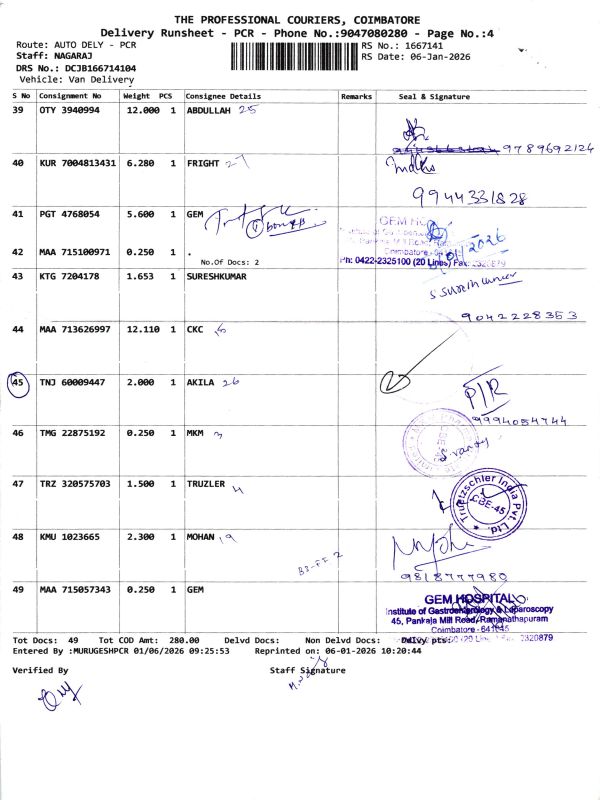 THE PROFESSIONAL COURIERS, COIMBATORE
Delivery Runsheet - PCR - Phone No.:9047080280 - Page No.:4
Route: AUTO DELY - PCR
RS No.: 1667141
Staff: NAGARAJ
RS Date: 06-Jan-2026
DRS No.: DCJB166714104
Vehicle: Van Delivery
S No Consignment No Weight PCS Consignee Details Remarks Seal & Signature
39 OTY 3940994 12.000 1 ABDULLAH 25
9789692124
40 KUR 7004813431 6.280 1 FRIGHT 27
9944331828
41 PGT 4768054 5.600 1 GEM
42 MAA 715100971 0.250 1 .
No.Of Docs: 2
Ph: 0422-2325100 (20 Lines) Fax: 2320879
43 KTG 7204178 1.653 1 SURESHKUMAR
S Sureshkumar
9042228353
44 MAA 713626997 12.110 1 CKC
45 TNJ 60009447 2.000 1 AKILA 26
P/R
9994054744
46 TMG 22875192 0.250 1 MKM 3
47 TRZ 320575703 1.500 1 TRUZLER 4
Truetzschler India Pvt. Ltd.
CBE-45
48 KMU 1023665 2.300 1 MOHAN 19
9818777980
49 MAA 715057343 0.250 1 GEM
GEM HOSPITAL
Institute of Gastroenterology & Laparoscopy
45, Pankaja Mill Road, Ramanathapuram
Coimbatore - 641045
Tot Docs: 49 Tot COD Amt: 280.00 Delvd Docs: Non Delvd Docs: Delvy pts:
Entered By :MURUGESHPCR 01/06/2026 09:25:53 Reprinted on: 06-01-2026 10:20:44
Verified By Staff Signature